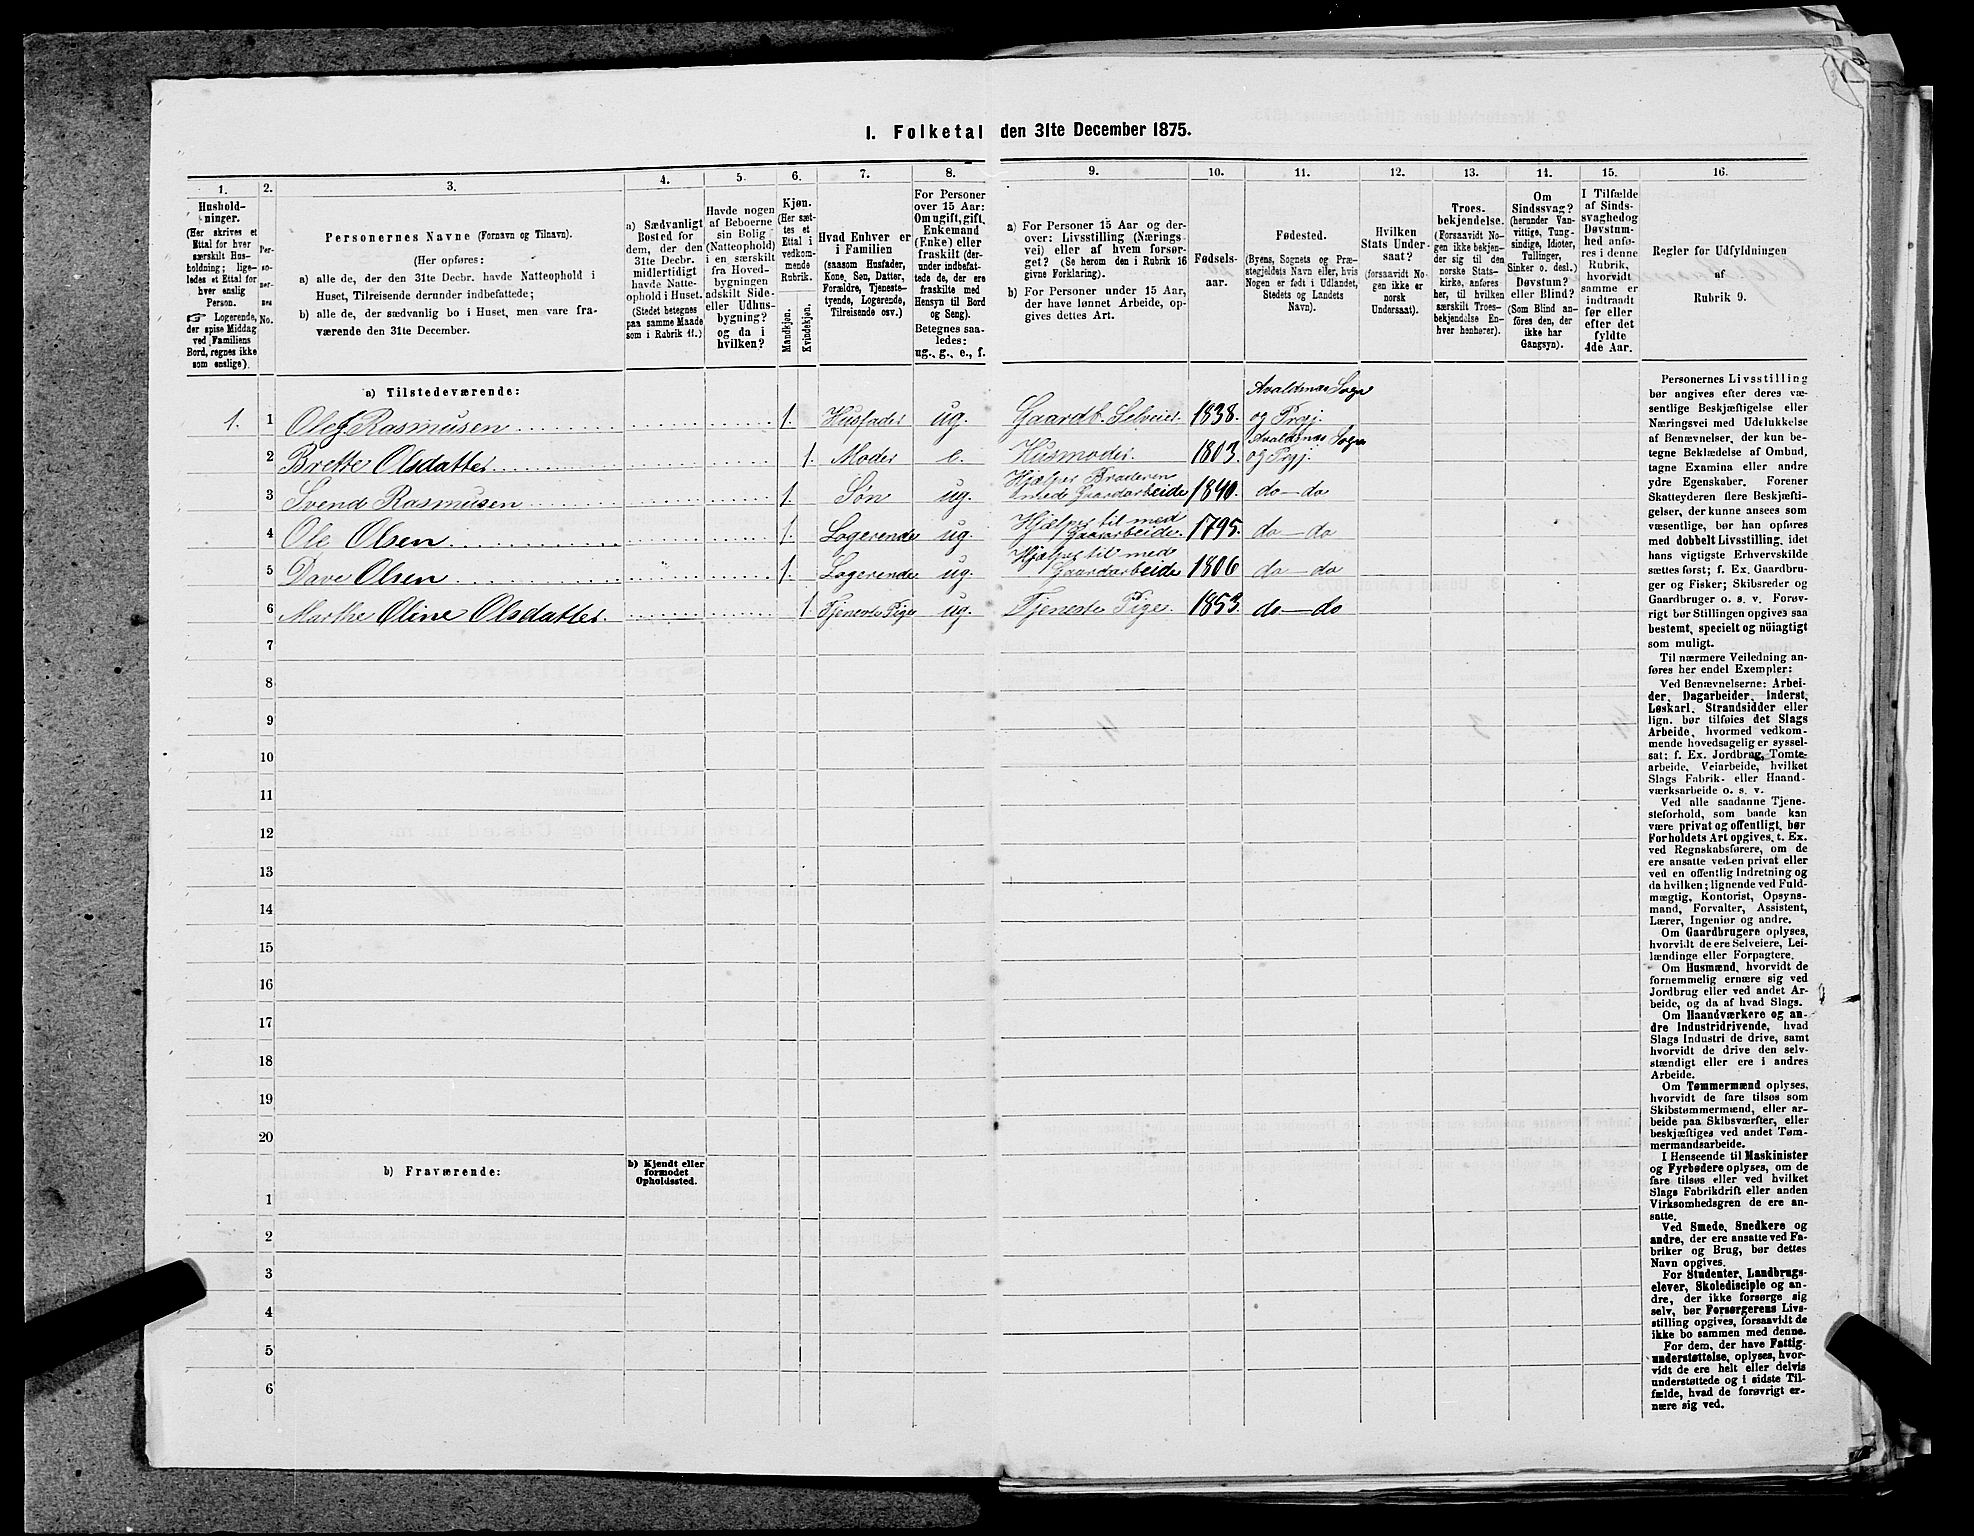 1. Folketal den 31te December 1875.
1. 2. 3. 4. 5. 6. 7. 8. 9. 10. 11. 12. 13. 14. 15. 16.
Hushold-
ninger.
(Her skrives et
Ettal for hver
særskilt Hus-
holdning; lige-
ledes et Ettal
for hver enslig
Person.
☞ Logerende,
der spise Middag
ved Familiens
Bord, regnes ikke
som enslige).
Per-
so-
ner-
nes
No.
Personernes Navne (Fornavn og Tilnavn).
(Her opføres:
a) alle de, der den 31te Decbr. havde Natteophold i
Huset, Tilreisende derunder indbefattede;
b) alle de, der sædvanlig bo i Huset, men vare fra-
værende den 31te December.
a) Sædvanligt
Bosted for
dem, der den
31te Decbr.
midlertidigt
havde Natte-
ophold i Huset.
(Stedet betegnes
paa samme Maade
som i Rubrik 11.)
Havde nogen
af Beboerne
sin Bolig
(Natteophold)
i en særskilt
fra Hoved-
bygningen
adskilt Side-
eller Udhus-
bygning?
og da i
hvilken?
Kjøn.
(Her sæt-
tes et
Ettal i
vedkom-
mende
Rubrik.
Mandkjøn.
Kvindekjøn.
Hvad Enhver er
i Familien
(saasom Husfader,
Kone, Søn, Datter,
Forældre, Tjeneste-
tyende, Logerende,
Tilreisende osv.)
For Personer
over 15 Aar:
Om ugift, gift,
Enkemand
(Enke) eller
fraskilt (der-
under indbefat-
tede de, der ere
fraskilte med
Hensyn til Bord
og Seng).
Betegnes saa-
ledes:
ug., g., e., f.
a) For Personer 15 Aar og der-
over: Livsstilling (Nærings-
vei) eller af hvem forsør-
get? (Se herom den i Rubrik 16
givne Forklaring).
b) For Personer under 15 Aar,
der have lønnet Arbeide, op-
gives dettes Art.
Fødsels-
aar.
Fødested.
(Byens, Sognets og Præ-
stegjeldets Navn eller, hvis
Nogen er født i Udlandet,
Stedets og Landets
Navn).
Hvilken
Stats Under-
saat?
(forsaavidt No-
gen ikke er
norsk
Undersaat).
Troes-
bekjendelse.
(Forsaavidt No-
gen ikke bekjen-
der sig til den
norske Stats-
kirke, anføres
her, til hvilken
særskilt Troes-
bekjendelse En-
hver henhører).
Om
Sindssvag?
(herunder Van-
vittige, Tung-
sindige, Idioter,
Tullinger,
Sinker o. desl.)
Døvstum?
eller Blind?
(Som Blind an-
føres den, der
ikke har
Gangsyn).
I Tilfælde
af Sinds-
svaghed og
Døvstum-
hed anfø-
res i denne
Rubrik,
hvorvidt
samme er
indtraadt
før eller
efter det
fyldte
4de Aar.
Regler for Udfyldningen
af
Rubrik 9.
a) Tilstedeværende:
1. 1 Ole Rasmusen 1. Husfader ug. Gaardb. Selveier. 1838. Avaldsnæs Sogn og Prgj.
2 Brette Olsdatter 1. Moder e. Husmoder. 1803. Avaldsnæs Sogn og Prgj.
3 Svend Rasmusen 1. Søn ug. Hjelper Broderen med Gaardarbeide 1840. do—do
4 Ole Olsen 1. Logerende ug. Hjelper til med Gaardarbeide. 1795. do—do
5 Dave Olsen 1. Logerende ug. Hjelper til med Gaardarbeide 1806 do—do
6 Marthe Oline Olsdatter. 1. Tjeneste Pige ug. Tjeneste Pige. 1853. do—do
7
8
9
10
11
12
13
14
15
16
17
18
19
20
b) Fraværende:
b) Kjendt eller
formodet
Opholdssted.
1
2
3
4
5
6
Personernes Livsstilling
bør angives efter deres væ-
sentlige Beskjæftigelse eller
Næringsvei med Udelukkelse
af Benævnelser, der kun be-
tegne Beklædelse af Ombud,
tagne Examina eller andre
ydre Egenskaber. Forener
Skatteyderen flere Beskjæfti-
gelser, der kunne ansees som
væsentlige, bør han opføres
med dobbelt Livsstilling, idet
hans vigtigste Erhvervskilde
sættes først; f. Ex. Gaardbru-
ger og Fisker; Skibsreder og
Gaardbruger o. s. v. Forøv-
rigt bør Stillingen opgives saa
bestemt, specielt og nöiagtigt
som muligt.
Til nærmere Veiledning an-
føres her endel Exempler:
Ved Benævnelserne: Arbei-
der, Dagarbeider, Inderst,
Løskarl, Strandsidder eller
lign. bør tilføies det Slags
Arbeide, hvormed vedkom-
mende hovedsagelig er syssel-
sat; f. Ex. Jordbrug, Tomte-
arbeide, Veiarbeide, hvilket
Slags Fabrik- eller Haand-
værksarbeide o. s. v.
Ved alle saadanne Tjene-
steforhold, som baade kan
være privat og offentligt, bør
Forholdets Art opgives, t. Ex.
ved Regnskabsførere, om de
ere ansatte ved en privat eller
ved en offentlig Indretning og
da hvilken; lignende ved Fuld-
mægtig, Kontorist, Opsyns-
mand, Forvalter, Assistent,
Lærer, Ingeniør og andre.
Om Gaardbrugere oplyses,
hvorvidt de ere Selveiere, Lei-
lændinge eller Forpagtere.
Om Husmænd, hvorvidt de
fornemmelig ernære sig ved
Jordbrug eller ved andet Ar-
beide, og da af hvad Slags.
Om Haandværkere og an-
dre Industridrivende, hvad
Slags Industri de drive, samt
hvorvidt de drive den selv-
stændigt eller ere i andres
Arbeide.
Om Tømmermænd oplyses,
hvorvidt de fare tilsøs som
Skibstømmermænd, eller ar-
beide paa Skibsværfter, eller
beskjæftiges ved andet Tøm-
mermandsarbeide.
I Henseende til Maskinister
og Fyrbødere oplyses, om de
fare tilsøs eller ved hvilket
Slags Fabrikdrift eller anden
Virksomhedsgren de ere an-
satte.
Ved Smede, Snedkere og
andre, der ere ansatte ved Fa-
briker og Brug, bør dettes
Navn opgives.
For Studenter, Landbrugs-
elever, Skoledisciple og an-
dre, der ikke forsørge sig
selv, bør Forsørgerens Livs-
stilling opgives, forsaavidt de
ikke bo sammen med denne.
For dem, der have Fattig-
understøttelse, oplyses, hvor-
vidt de ere helt eller delvis
understøttede og i sidste Til-
fælde, hvad de forøvrigt er-
nære sig ved.